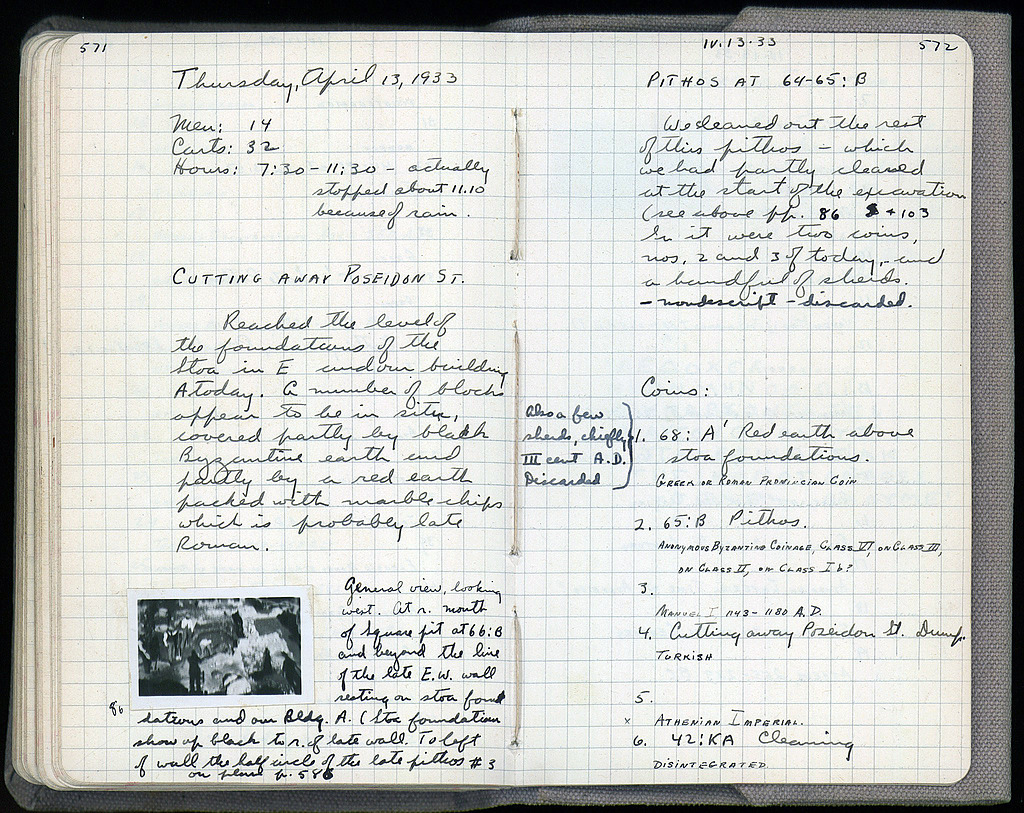 571
Thursday, April 13, 1933
Men: 14
Carts: 32
Hours: 7:30 - 11:30 - actually
stopped about 11.10
because of rain.
CUTTING AWAY POSEIDON ST.
Reached the level of
the foundations of the
Stoa in E and our building
A today. A number of blocks
appear to be in situ,
covered partly by black
Byzantine earth and
partly by a red earth
packed with marble chips
which is probably late
Roman.
General view, looking
west. At r. mouth
of square pit at 66:B
and beyond the line
of the late E.W. wall
resting on stoa foun
86
dations and our Bldg. A. (Stoa foundation
show up black to r. of late wall. To left
of wall the half circle of the late pithos #3
on plan p. 586
IV.13.33
572
PITHOS AT 64-65:B
We cleaned out the rest
of this pithos - which
we had partly cleared
at the start of the excavation
(see above pp. 86 + 103
In it were two coins,
nos. 2 and 3 of today, and
a handful of sherds.
- nondescript - discarded.
Coins:
Also a few
sherds, chiefly
III cent A.D.
Discarded
1. 68: A' Red earth above
stoa foundations.
GREEK OR ROMAN PROVINCIAN COIN
2. 65:B Pithos.
ANONYMOUS BYZANTINE COINAGE, CLASS VI, OR CLASS III,
OR CLASS II, OR CLASS I b?
3.
MANUEL I 1143-1180 A.D.
4. Cutting away Poseidon St. Dump.
TURKISH
5.
x ATHENIAN IMPERIAL.
6. 42:KA Cleaning
DISINTEGRATED.